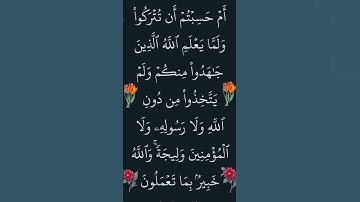 أَمۡ حَسِبۡتُمۡ أَن تُتۡرَكُواْ
وَلَمَّا يَعۡلَمِ ٱللَّهُ ٱلَّذِينَ
جَٰهَدُواْ مِنكُمۡ وَلَمۡ
يَتَّخِذُواْ مِن دُونِ
ٱللَّهِ وَلَا رَسُولِهِۦ وَلَا
ٱلۡمُؤۡمِنِينَ وَلِيجَةٗۚ وَٱللَّهُ
خَبِيرُۢ بِمَا تَعۡمَلُونَ